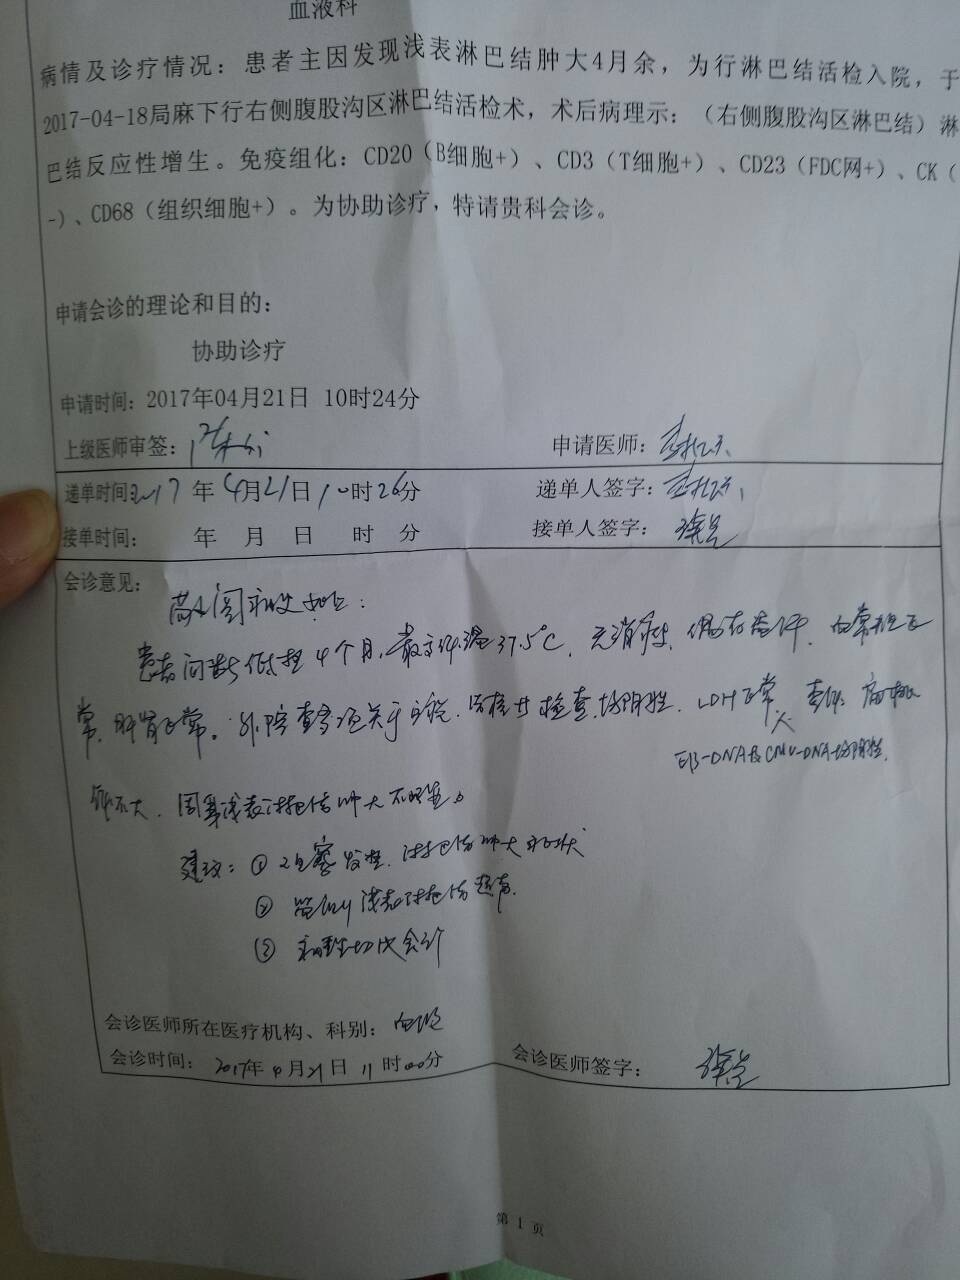 血液科
病情及诊疗情况：患者主因发现浅表淋巴结肿大4月余，为行淋巴结活检入院，于
2017-04-18局麻下行右侧腹股沟区淋巴结活检术，术后病理示：（右侧腹股沟区淋巴结）淋
巴结反应性增生。免疫组化：CD20（B细胞+）、CD3（T细胞+）、CD23（FDC网+）、CK（
-）、CD68（组织细胞+）。为协助诊疗，特请贵科会诊。
申请会诊的理论和目的：
协助诊疗
申请时间：2017年04月21日 10时24分
上级医师审签： 申请医师：
递单时间：2017年4月21日10时26分 递单人签字：
接单时间： 年 月 日 时 分 接单人签字：
会诊意见：
阅病史如上：
患者间断低热4个月，最高体温37.5℃，无消瘦，偶有盗汗，血常规正
常，肝肾正常。外院查 关于 检查均阴性，LDH正常，
EB-DNA及CMV-DNA均阴性，
大，周身浅表淋巴结肿大不明显。
建议：① 观察发热，淋巴结肿大症状
② 浅表淋巴结超声
③ 病理切片会诊
会诊医师所在医疗机构、科别：血液
会诊时间：2017年4月21日11时00分 会诊医师签字：
第 1 页